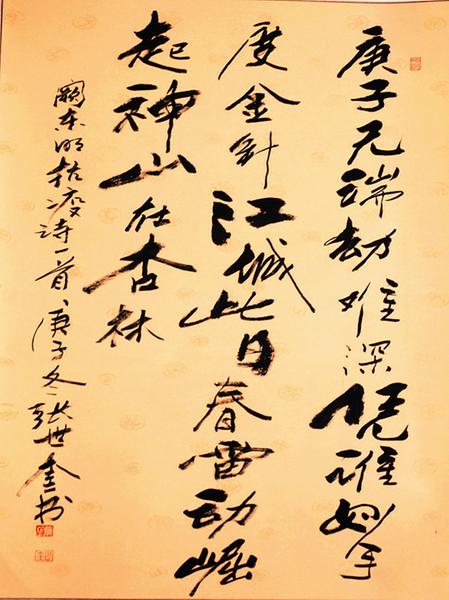 庚子无端劫难深凭谁妙手
度金针江城此日春雷动崛
起神山在杏林
阚东明抗疫诗一首庚子冬张世奎书